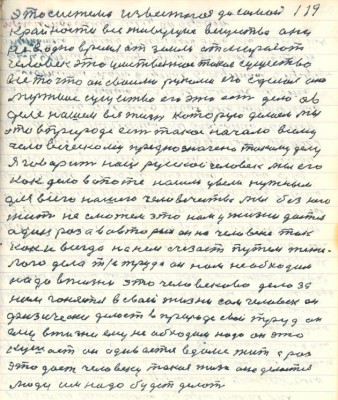 это система известная до самой 119
крайности все живущие вещества они
человек это единственное такое существо
все то что он своими руками его сделал оно
мертвое существо его это есть дело а в
деле нашем вся жизнь которую делаем мы
это в природе есть такое начало всему
человеческому предназначено такому делу
Я говорит наш русской человек мы его
как дело в этом нашли увели нужным
для всего нашего человечества мы без него
жить не сможем это нам у жизни дается
один раз а во второй он на человека так
как и всегда на нем счезает путем тяже-
лого дела т/е труда он нам необходим
надо в жизни это человеково дело за
ним гонятся в своей жизни сам человек он
физически делает в природе свой труд он
ему в жизни ему необходим надо он это
кушает он одевается в доме жить а раз
это дает человеку такая жизнь она делается
люди им надо будет делать